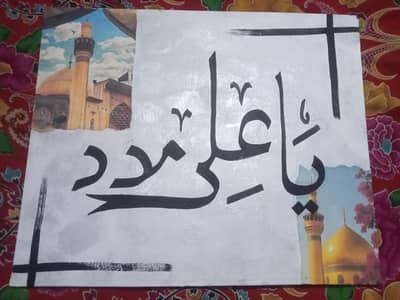 یَا عَلِی مدد